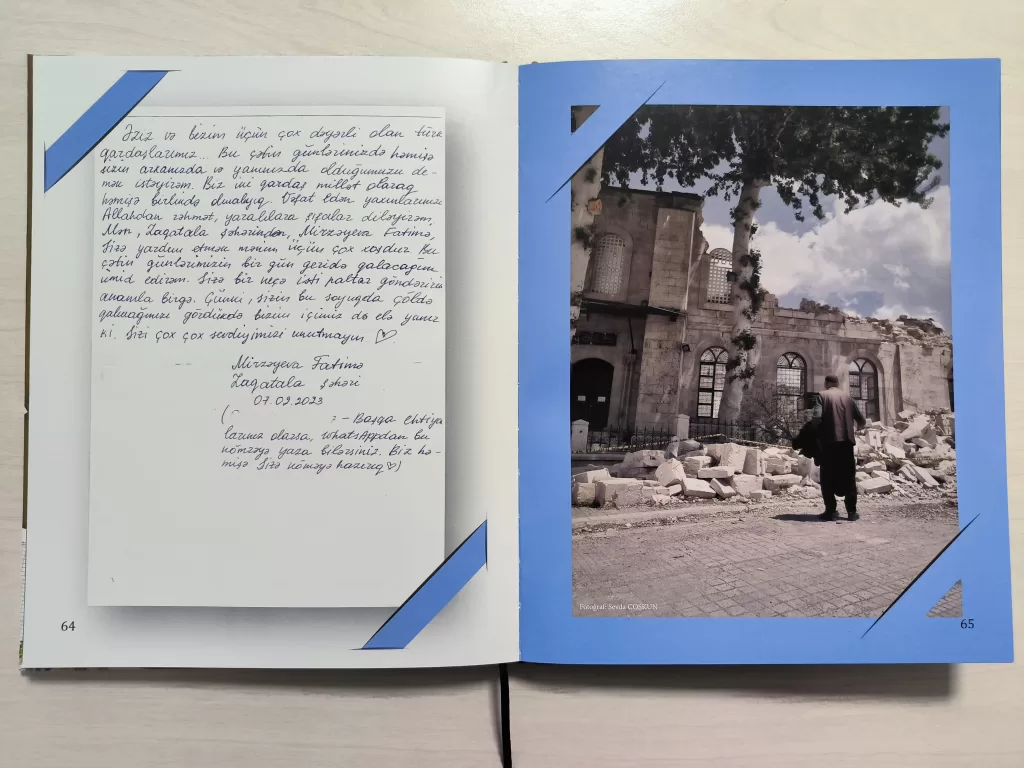 Əziz və bizim üçün çox dəyərli olan türk
qardaşlarımız... Bu çətin günlərinizdə həmişə
sizin arxanızda və yanınızda olduğumuzu de-
mək istəyirəm. Biz iki qardaş millət olaraq
həmişə birlikdə olmalıyıq. Vəfat edən yaxınlarınıza
Allahdan rəhmət, yaralılara şəfalar diləyirəm.
Mən, Zaqatala şəhərindən, Mirzəyeva Fatimə,
Sizə yardım etmək mənim üçün çox xoşdur. Bu
çətin günlərimizin bir gün geridə qalacağını
ümid edirəm. Sizə bir neçə isti paltar göndərirəm
anamla birgə. Çünki, sizin bu soyuqda çöldə
qalmağınızı gördükdə bizim içimiz də elə yanır
ki. Sizi çox çox sevdiyimizi unutmayın ♡.
Mirzəyeva Fatimə
Zaqatala şəhəri
07.02.2023
( – Başqa ehtiyac
larınız olarsa, WhatsAppdan bu
nömrəyə yaza bilərsiniz. Biz hə-
mişə Sizə köməyə hazırıq ♡)
64
Fotoğraf: Sevda COŞKUN
65